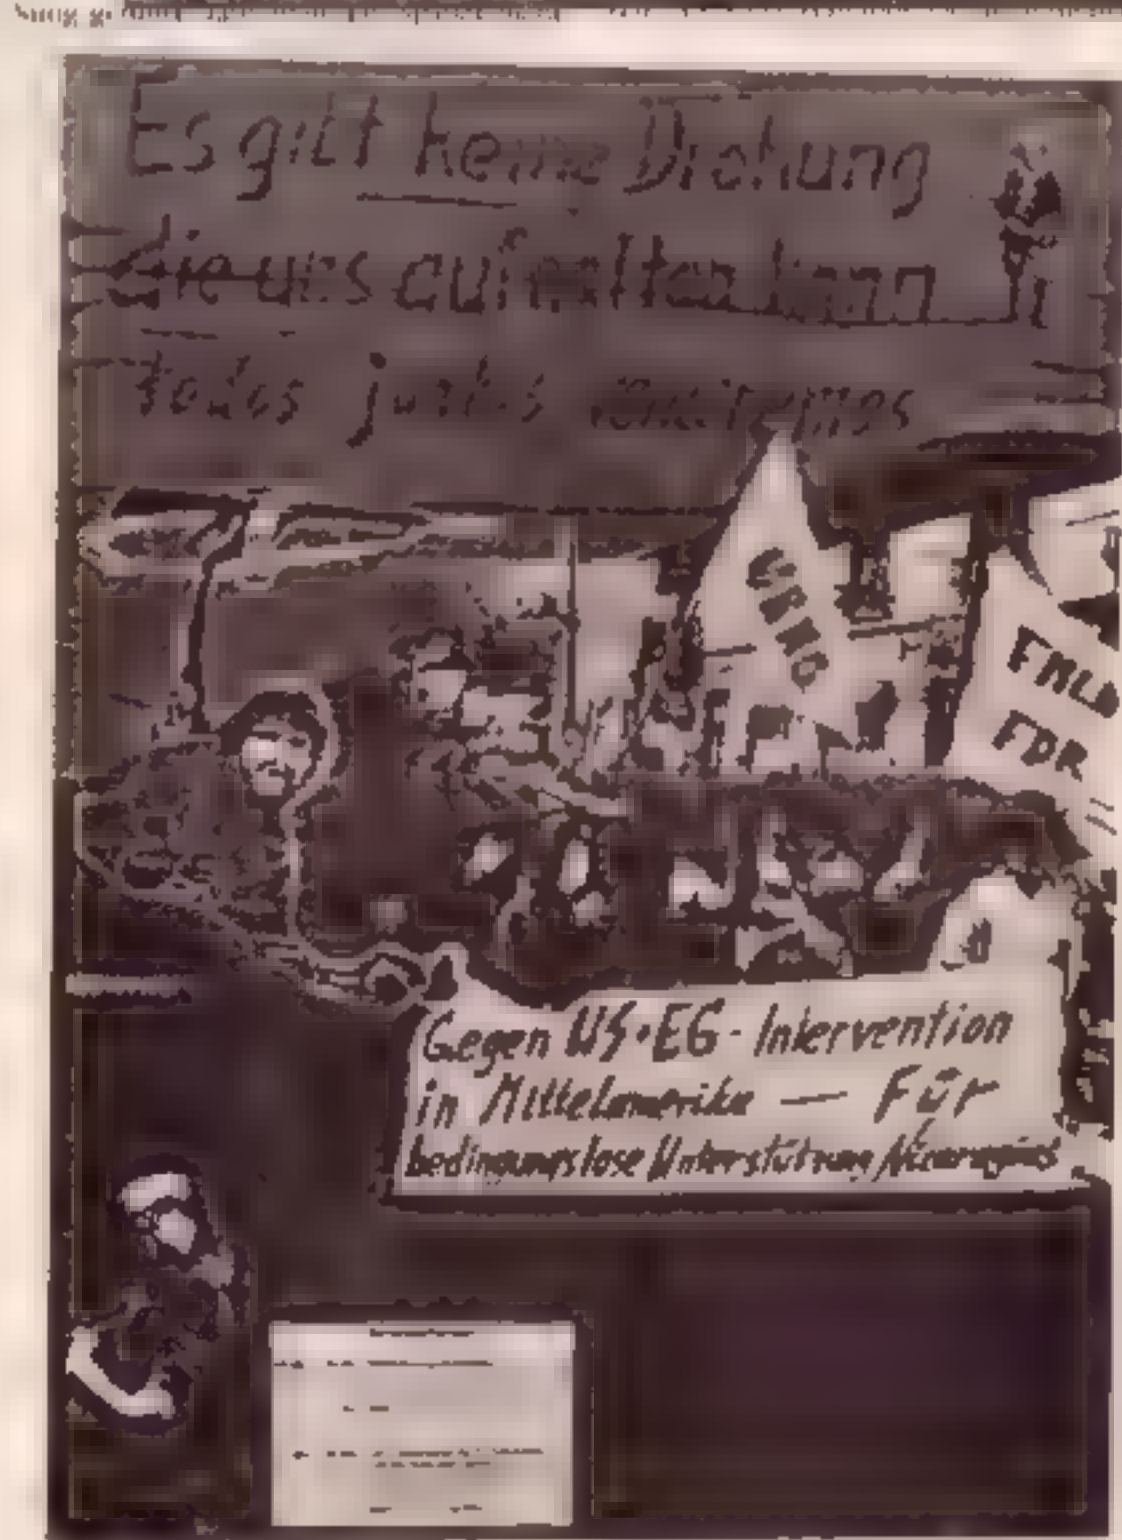 Es gilt keine Drohung
die uns aufhalten kann
todos juntos venceremos
URNG
FMLN
FDR
Gegen US-EG-Intervention
in Mittelamerika — Für
bedingungslose Unterstützung Nicaraguas